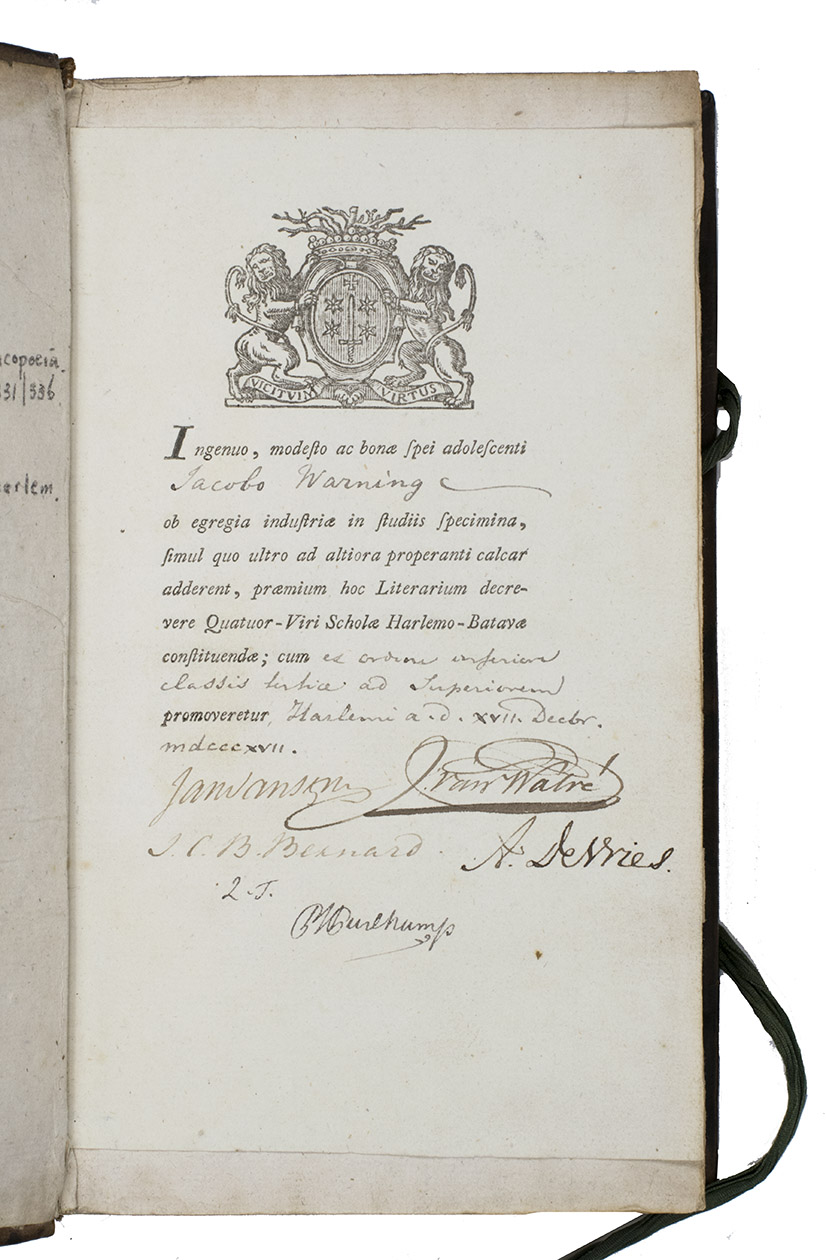 acopoeia.
331/336
aarlem.
VICIT VIM VIRTUS
Ingenuo, modeſto ac bonæ ſpei adoleſcenti
Jacobo Warning
ob egregia induſtriæ in ſtudiis ſpecimina,
ſimul quo ultro ad altiora properanti calcar
adderent, præmium hoc Literarium decre-
vere Quatuor-Viri Scholæ Harlemo-Batavæ
conſtituendæ; cum ex ordine inferiore
classis tertiæ ad Superiorem
promoveretur, Harlemi a. d. XVII. Decbr.
MDCCCXVII.
J. van Walré
J. C. B. Bernard. A. De Vries.